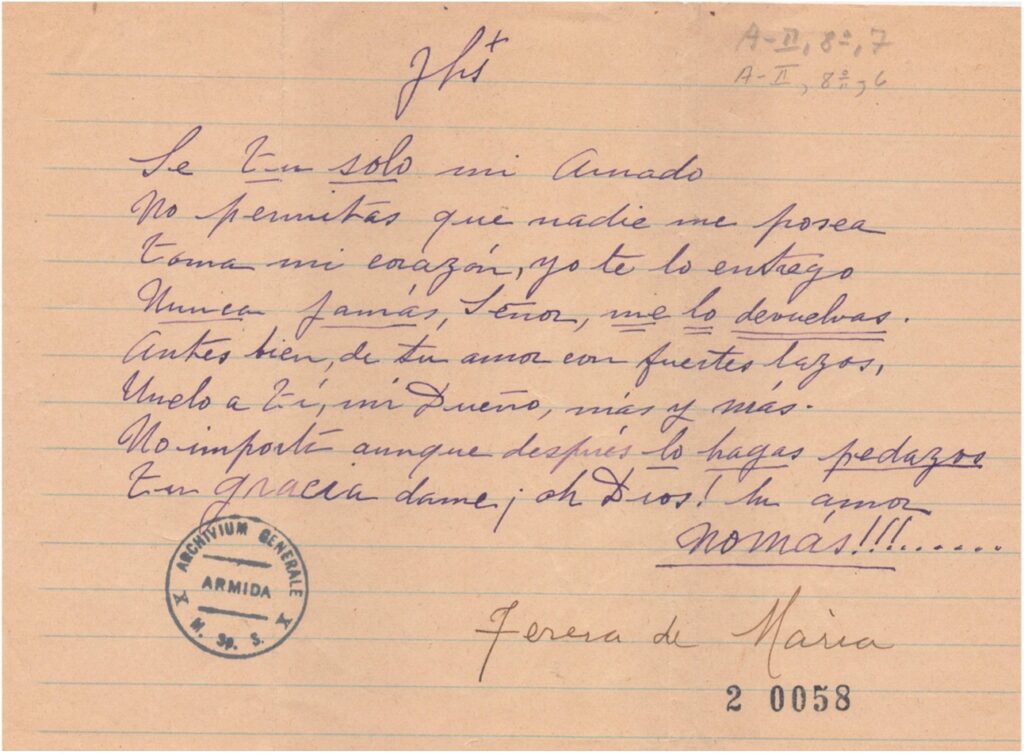 Jhs+
A-II, 8º, 7
A-II, 8º, 6
Se tu solo mi Amado
No permitas que nadie me posea
toma mi corazón, yo te lo entrego
Nunca jamás, Señor, me lo devuelvas.
Antes bien, de tu amor con fuertes lazos,
Unelo a Tí, mi Dueño, más y más.
No importa aunque después lo hagas pedazos
tu gracia dame ¡oh Dios! tu amor
nomás!!!.......
ARCHIVIUM GENERALE
ARMIDA
X M. SP. S. X
Teresa de María
2 0058